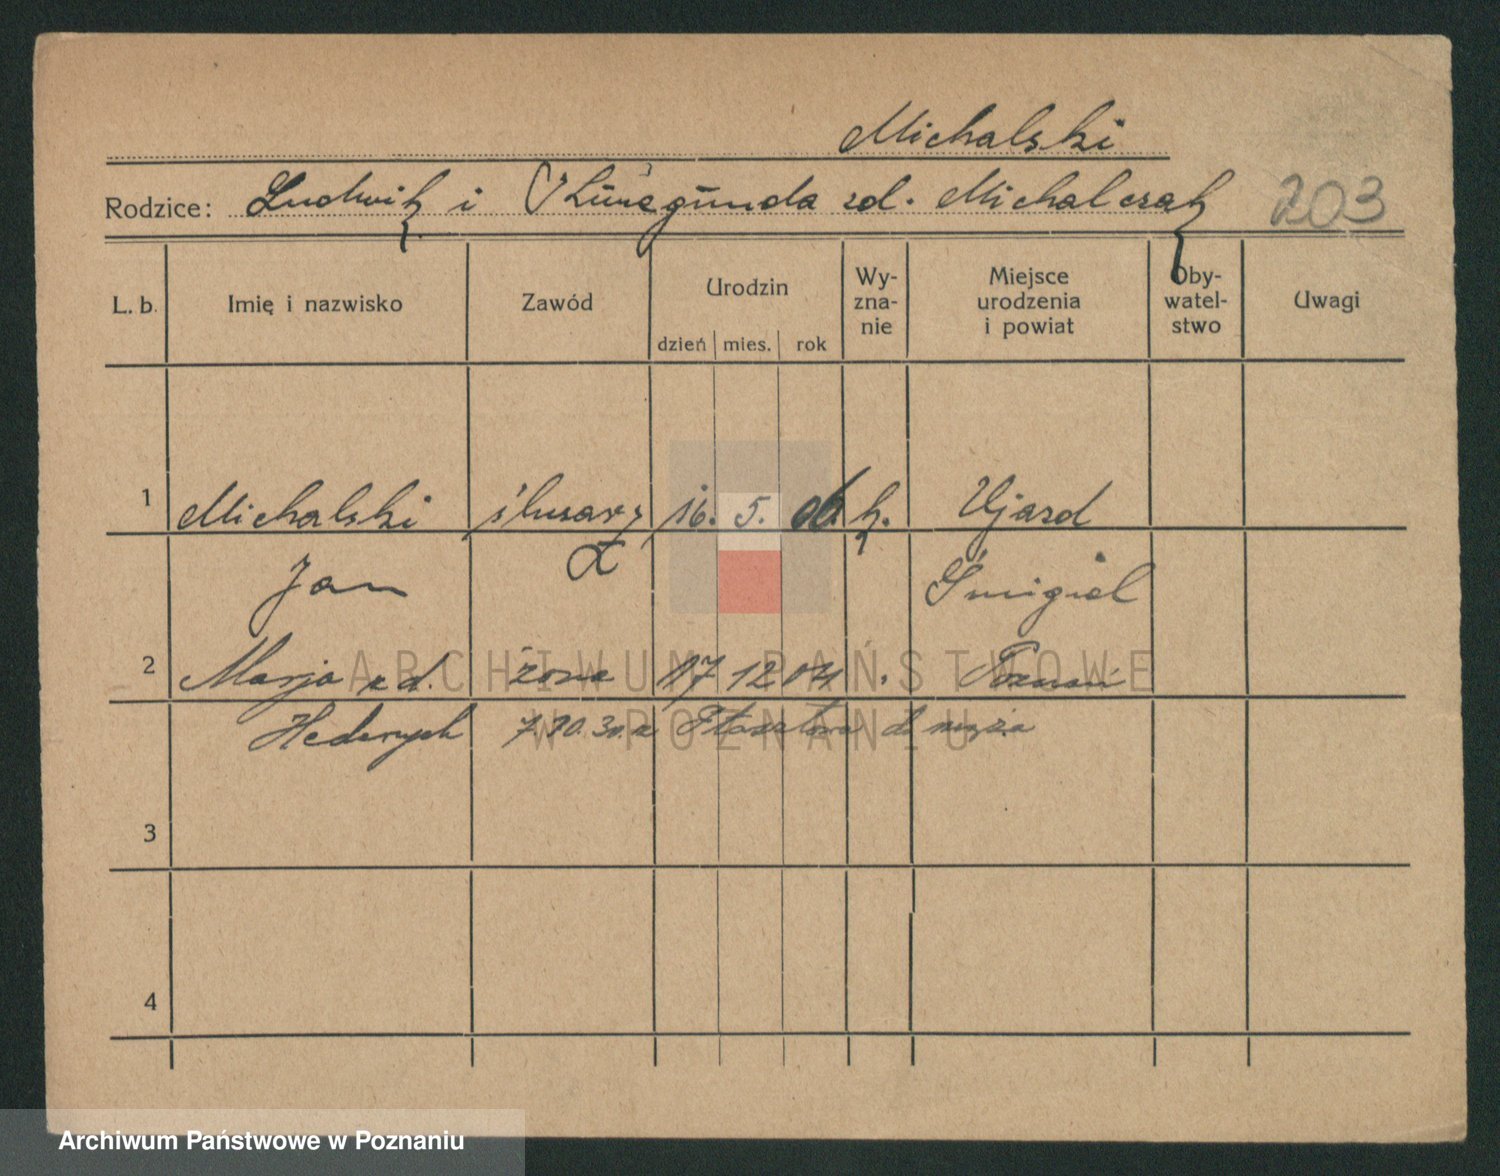 Michalski
Rodzice: Ludwik i Kunegunda zd. Michalczak 203
L. b. Imię i nazwisko Zawód Urodzin dzień mies. rok Wy-zna-nie Miejsce urodzenia i powiat Oby-watel-stwo Uwagi
1 Michalski ślusarz 16. 5. 06. k. Ujazd
Jan Śmigiel
2 Marja zd. żona 17 12 04 Poznań
Hederych 7.10.30. z do męża
3
4
ARCHIWUM PAŃSTWOWE
W POZNANIU
Archiwum Państwowe w Poznaniu